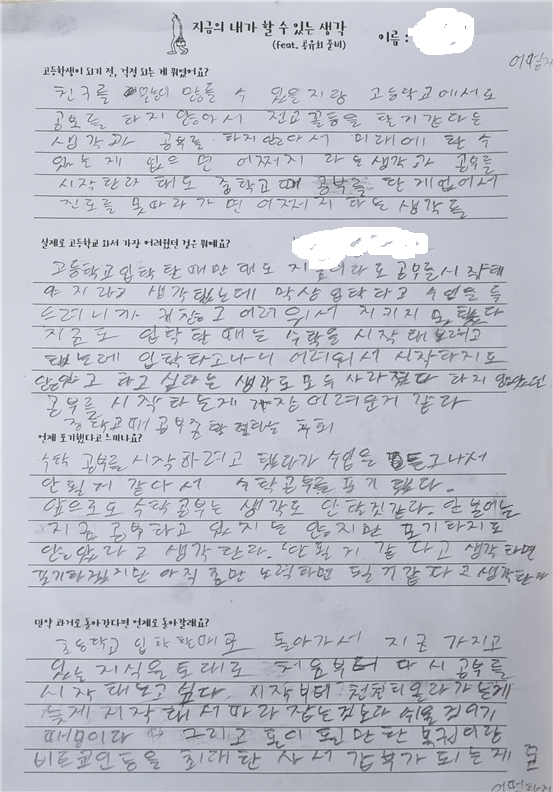 지금의 내가 할 수 있는 생각
(feat. 공유회 준비)
이름 :
고등학생이 되기 전, 걱정 되는 게 뭐였어요?
친구를 많이 만들 수 있을지랑 고등학교에서도
공부를 하지 않아서 전교 꼴등을 할지 같다는
생각과 공부를 하지 않아서 미래에 할 수
있는게 없으면 어쩌지 라는 생각과 공부를
시작한다 해도 중학교때 공부를 한게 없어서
진도를 못따라가면 어쩌지 라는 생각들
실제로 고등학교 와서 가장 어려웠던 것은 뭐예요?
고등학교 입학 할때만 해도 공부를 시작해
야지라고 생각했는데 막상 입학하고 수업을 들
으려니까 귀찮고 어려워서 지키지 못했다
지금도 입학할때는 수학을 시작해보려고
했는데 입학하고나니 어려워서 시작하지도
않았고 하고싶다는 생각도 모두 사라졌다 하지 않았던
공부를 시작하는게 가장 어려운거 같다
중학교때 공부좀 할 걸하는 후회
언제 포기했다고 느끼나요?
수학 공부를 시작하려고 했다가 수업을 듣고나서
안될거 같아서 수학공부를 포기했다.
앞으로도 수학공부는 생각도 안할것같다. 한 번에는
지금 공부하고 있지는 않지만 포기하지도
않았다고 생각한다. 안될거 같다고 생각하면
포기하겠지만 아직 좀만 노력하면 될거같다고 생각한다
만약 과거로 돌아간다면 언제로 돌아갈래요?
초등학교 입학할때로 돌아가서 지금 가지고
있는 지식을 토대로 처음부터 다시 공부를
시작해보고싶다. 시작부터 천천히 올라가는게
늦게 시작해서 따라잡는것보다 쉬울것이기
때문이다 그리고 돈이 될 만한 복권이랑
비트코인등을 최대한 사서 갑부가 되는게